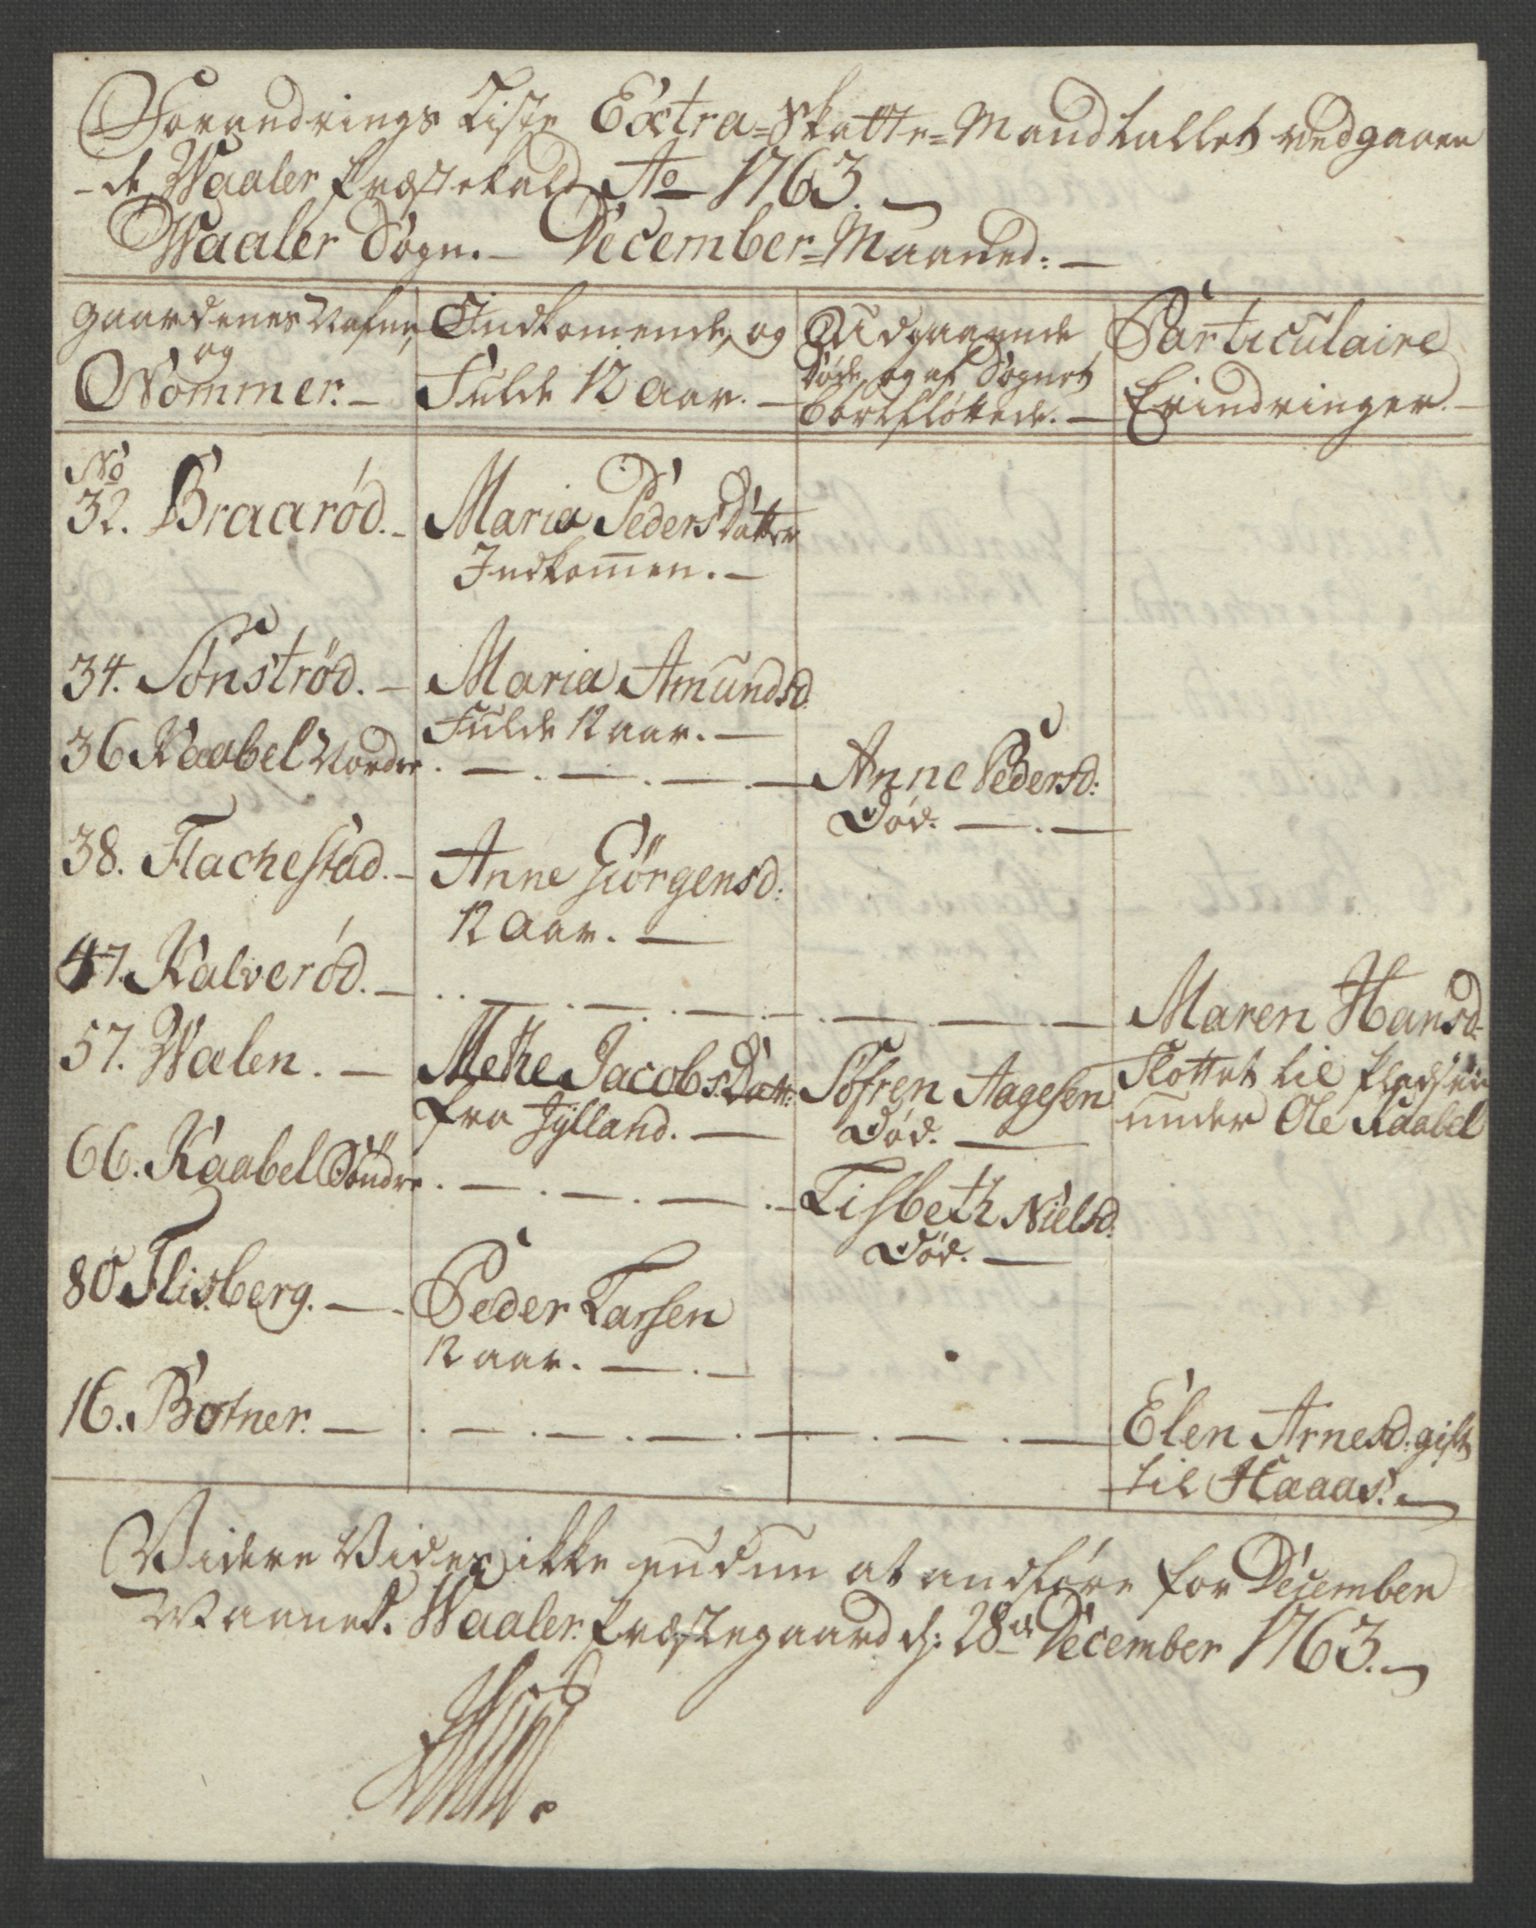 Forandrings Liste Extra-Skatte-Mandtallet vedgaaen
-de Waaler Præstekald Ao 1763.
Waaler Sogn. - December-Maaned: -
Gaardenes Nafne, og Nommer. -
Indkomende, og Fulde 12 Aar. -
Udgaaende Døde, og af Sognet bortfløttede. -
Particulaire Erindringer. -
No
32. Braarød. - Maria PedersDatter
Indkommen. -
34. Sonstrød. - Maria Amundsd.
Fulde 12 aar. -
36 Kaabel Nordre . - . - . - . - Anne Pedersd:
Død. - . -
38. Flachestad. - Anne Giörgensd:
12 Aar. -
47. Kalverød. - . . - . - . - . - . - Maren Hansd.
Fløttet til Pladsen
under Ole Kaabel
57. Walen. - Mette JacobsDatt: Søfren Aagesen
fra Jylland. - Død. -
66. Kaabel Söndre . - . - . - . - Lisbeth Nielsd.
Død. -
80 Flisberg. - . Peder Larsen
12 aar. - . -
16. Botner. - . - . - . - . - . - . - Elen Arnesd. gift
til Haaas. -
Videre Vides ikke endnu at andføre for December
Maaned. Waaler Præstegaard d: 28de December 1763. -